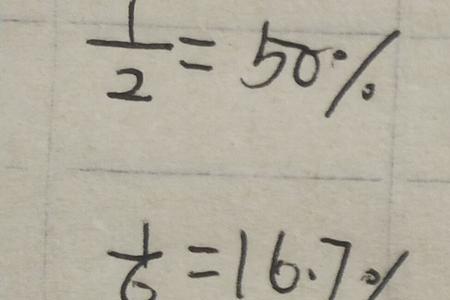 1/2 = 50%
1/6 = 16.7%